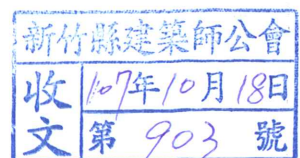 新竹縣建築師公會
收文
107年10月18日
第 903 號